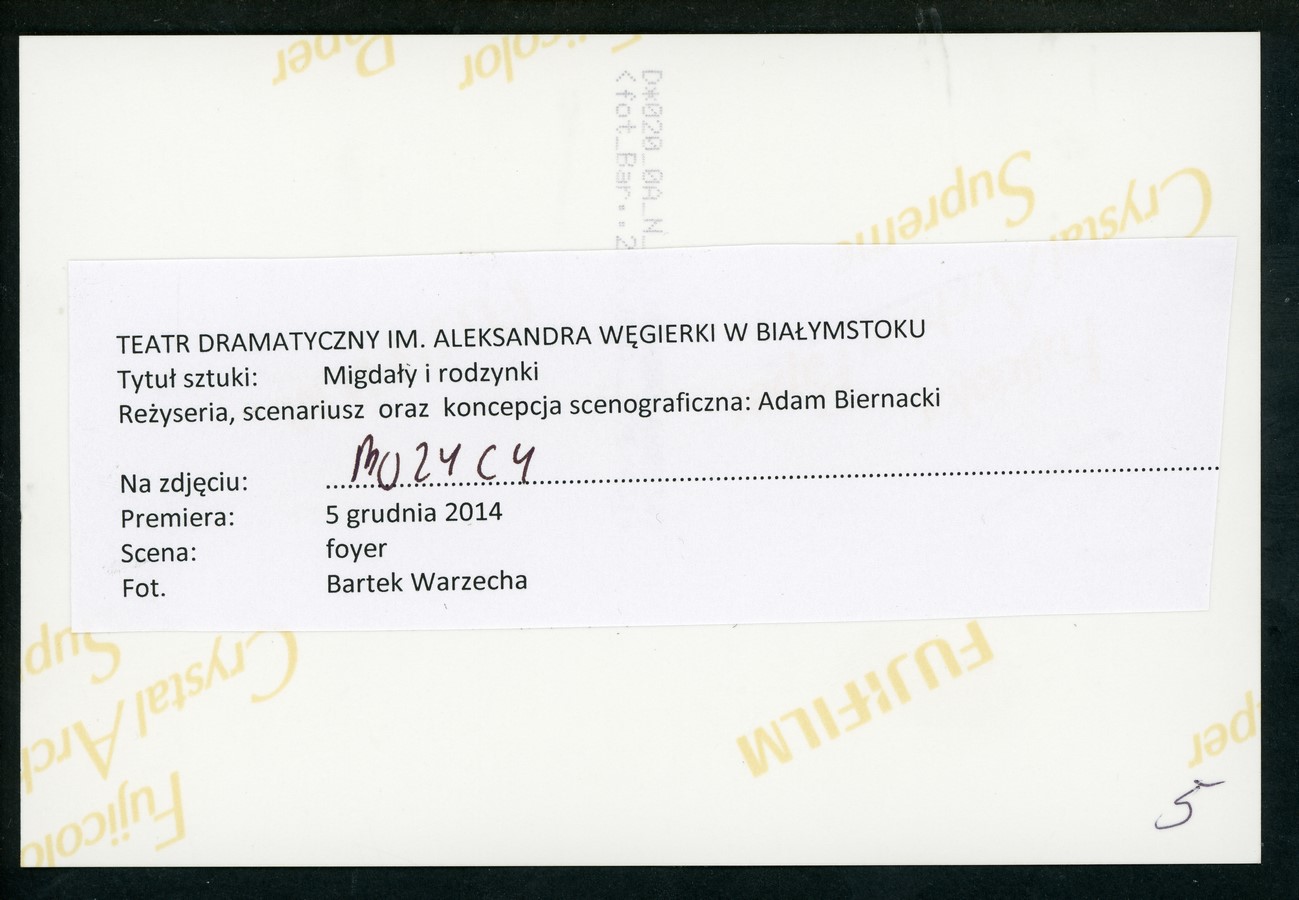 Fujicolor
Paper
D*020_0A_N_
<fot_Bar..2
Crystal
Supreme
TEATR DRAMATYCZNY IM. ALEKSANDRA WĘGIERKI W BIAŁYMSTOKU
Tytuł sztuki: Migdały i rodzynki
Reżyseria, scenariusz oraz koncepcja scenograficzna: Adam Biernacki
Na zdjęciu: MUZYCY
Premiera: 5 grudnia 2014
Scena: foyer
Fot. Bartek Warzecha
Sup
Crystal Arch
Fujicolo
FUJIFILM
per
5